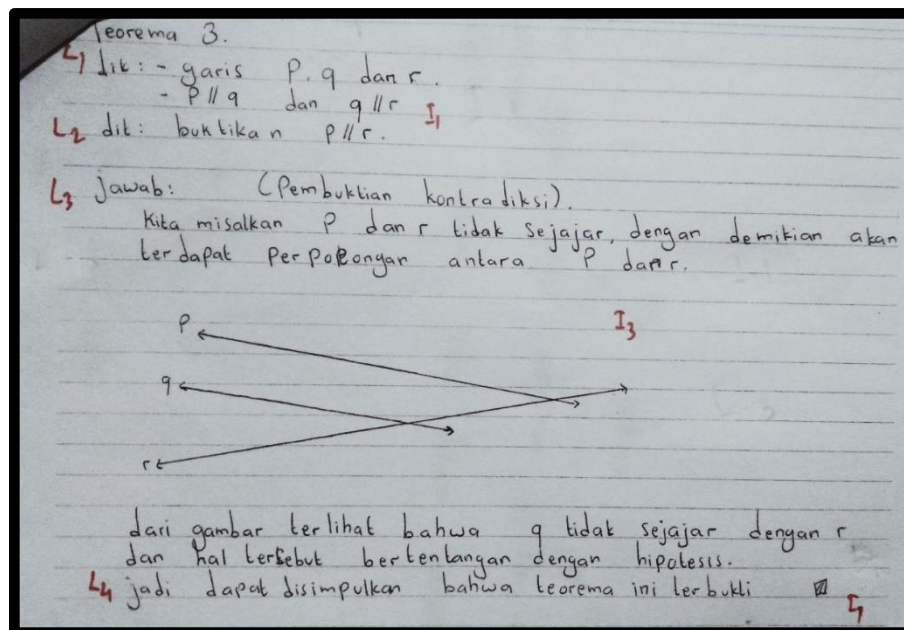 Teorema 3.
L1 dik: - garis P, q dan r.
- P // q dan q // r I1
L2 dit: buktikan P // r.
L3 jawab: (Pembuktian kontradiksi).
Kita misalkan P dan r tidak sejajar, dengan demikian akan
terdapat perpotongan antara P dan r.
P I3
q
r
dari gambar terlihat bahwa q tidak sejajar dengan r
dan hal tersebut bertentangan dengan hipotesis.
L4 jadi dapat disimpulkan bahwa teorema ini terbukti
I1